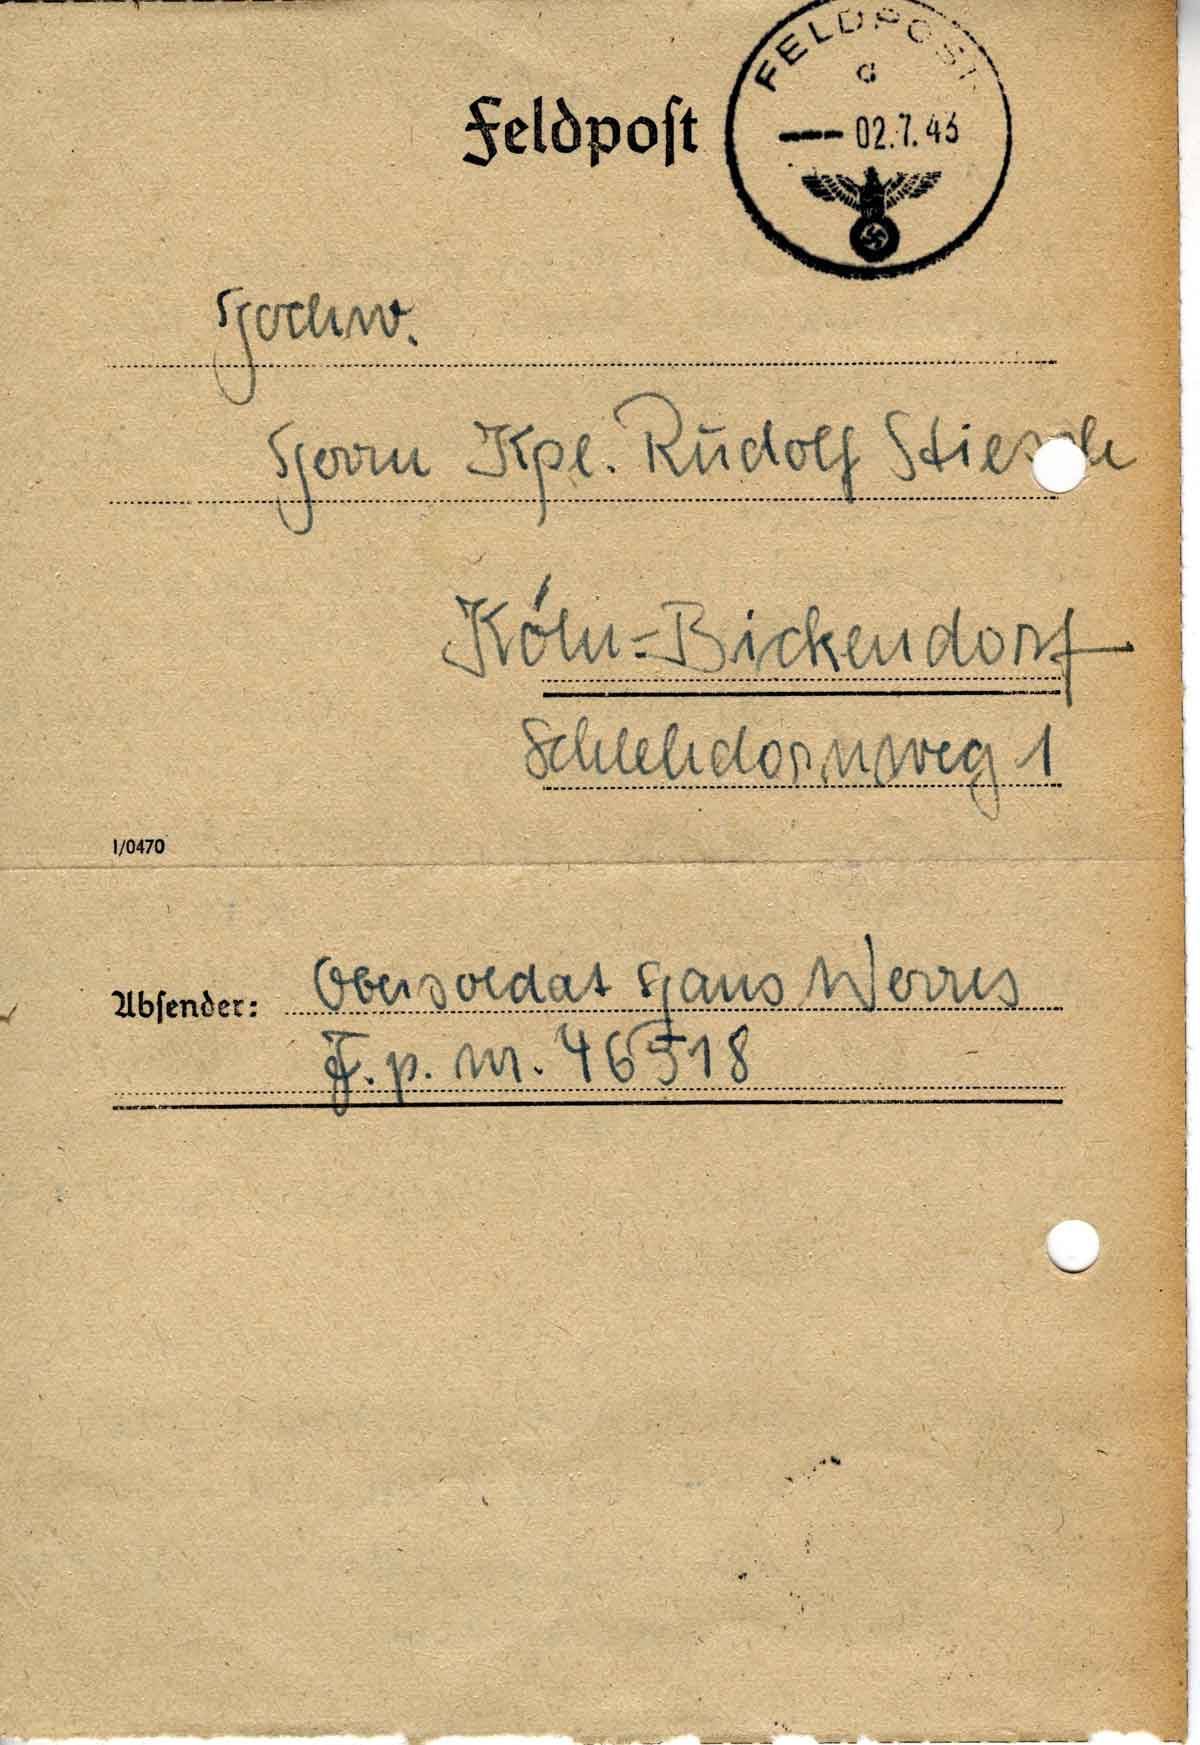 FELDPOST
d
02.7.43
Feldpost
Hochw.
Herrn Kpl. Rudolf
Köln-Bickendorf
Schlehdornweg 1
I/0470
Absender: Obersoldat Hans Werres
F.p. Nr. 46518